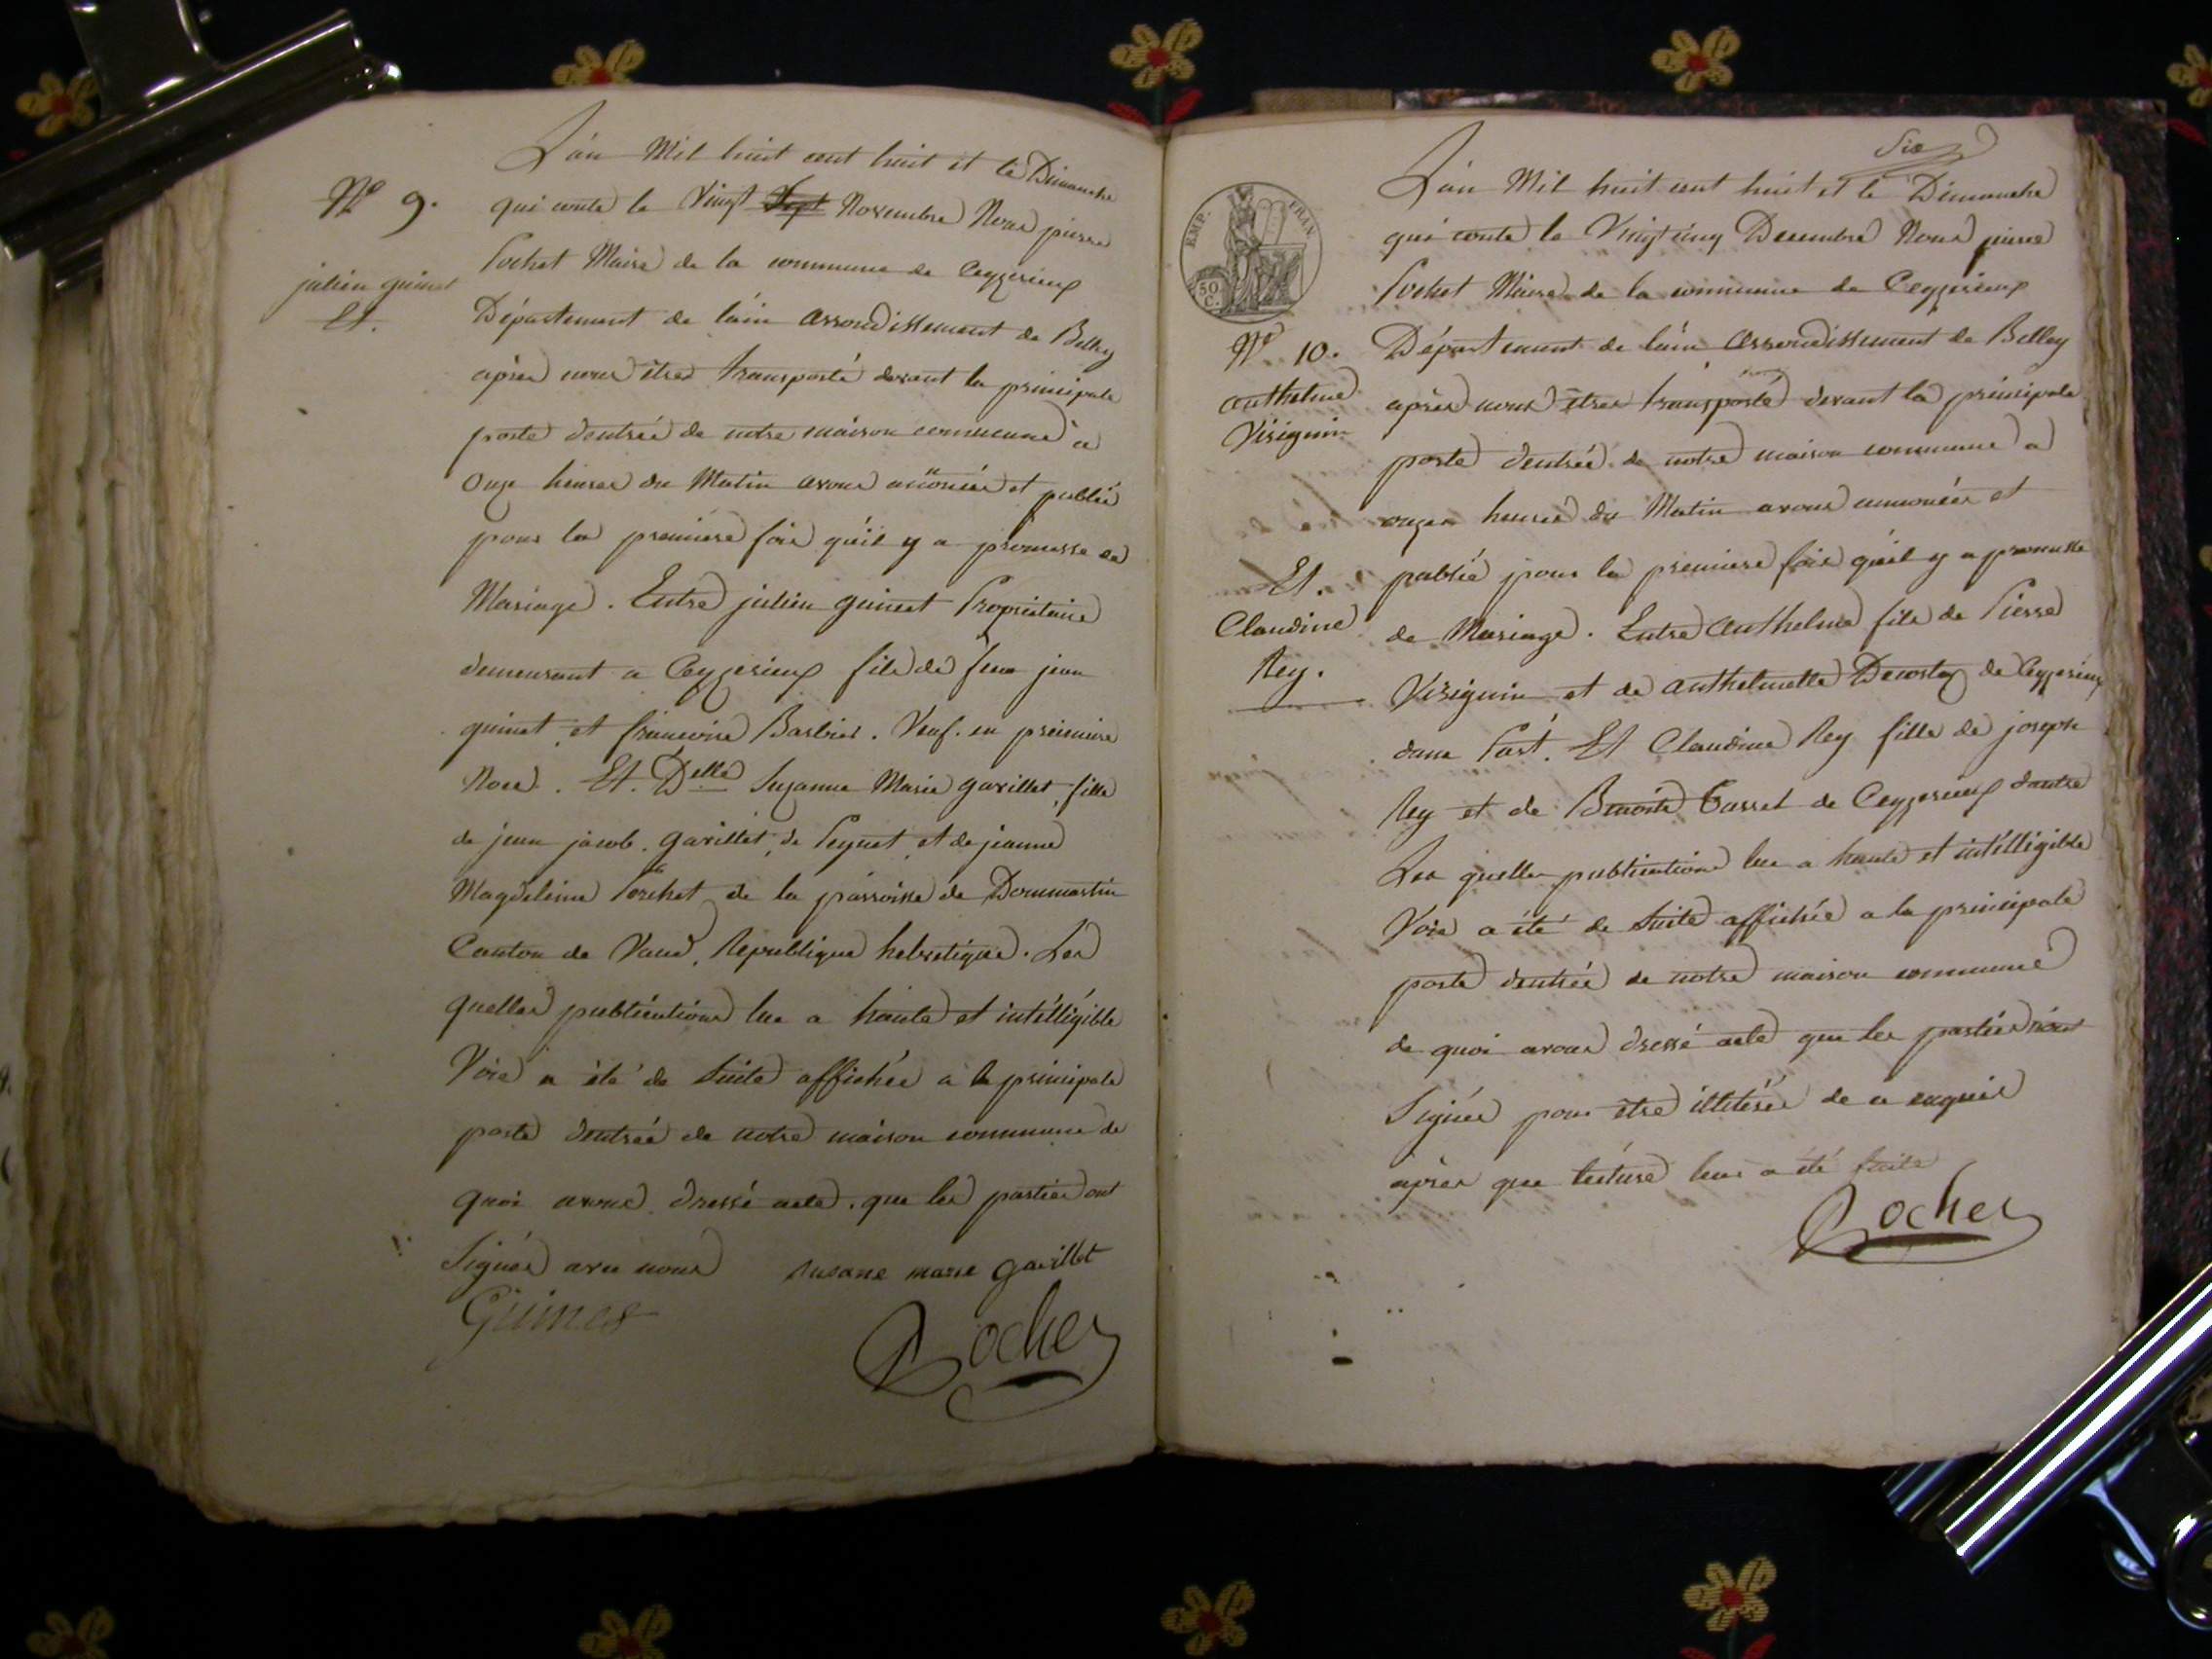 L'an Mil huit cent huit et le Dimanche
N° 9.
qui conte le Vingt Sept Novembre Nous pierre
Pochet Maire de la commune de Ceyzerieux
julien guinet
Et.
Département de lain arrondissement de Belley
après nous êtres transporté devant la principale
porte d'entrée de notre maison commune à
Onze heures du Matin avons anoncée et publié
pour la première fois qu'il y a promesse de
Mariage. Entre julien guinet Propriétaire
demeurant a Ceyzerieux fils de feux jean
guinet et francoise Barbier. Veuf. en premiere
Noce. Et. Delle Suzanne Marie gavillet, fille
de jean jacob. gavillet, de Peynet, et de jeanne
Magdeleine Porchet de la parroisse de Dommartin
Canton de Vaud, Republique helvetique. Les
quelles publications lue a haute et intélligible
Voie a été de Suite affichée a la principale
porte dentrée de notre maison commune de
quoi avons dressé acte. que les parties ont
Signés avec nous susane marie gavillet
Guinet
Pochet
Six
L'an Mil huit cent huit et le Dimanche
qui conte le Vingt cinq Decembre Nous pierre
Pochet Maire de la commune de Ceyzerieux
EMP. FRAN.
50 C.
N° 10.
Département de lain arrondissement de Belley
anthelme
Virignin
après nous êtres transporté devant la principale
porte d'entrée de notre maison commune a
onzes heures du Matin avons annoncées et
Et.
publié pour la premiere fois qu'il y a promesse
Claudine
de Mariage. Entre Anthelme fils de Pierre
Rey.
Virignin et de anthelmette Decostaz de Ceyzerieux
dune Part. Et Claudine Rey fille de joseph
Rey et de Benoite Carrel de Ceyzerieux dautre
Les quelles publications lue a haute et intélligible
Voie a été de Suite affichée a la principale
porte dentrée de notre maison commune
de quoi avons dressé acte que les parties nont
Signées pour être illiterée de ce enquis
après que lecture leur a été faite
Pochet